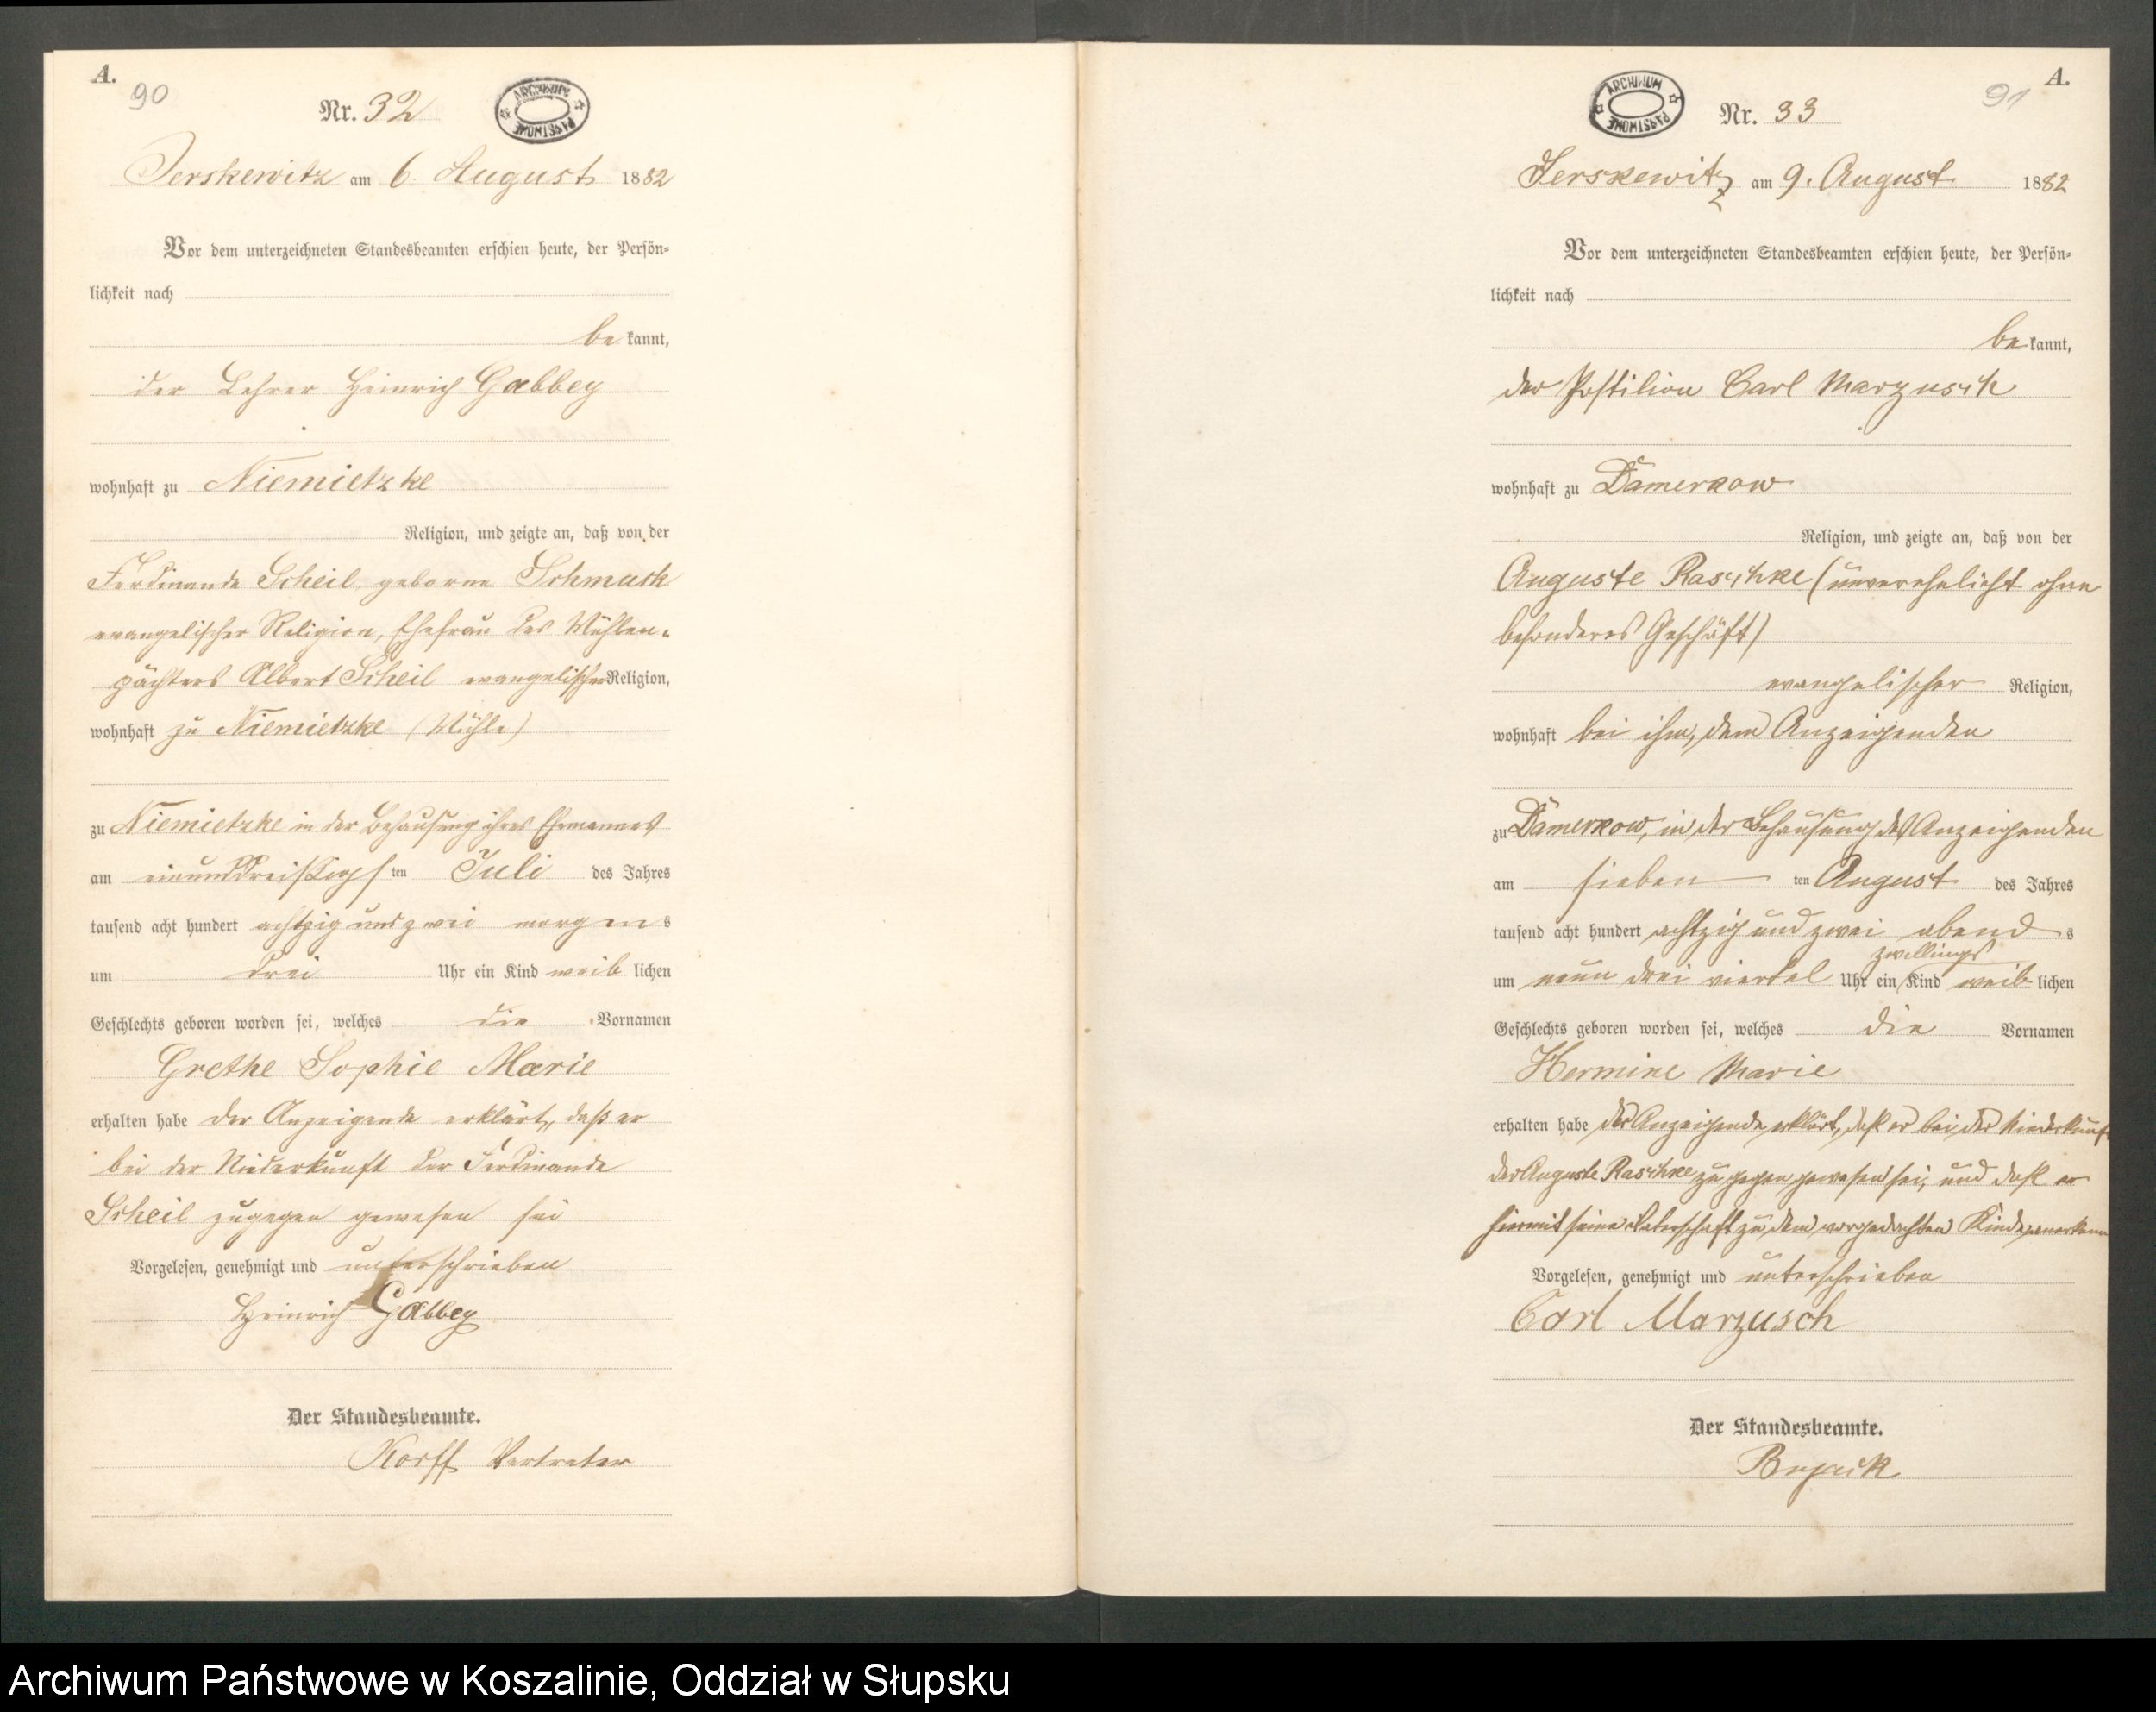 A.
90
Nr. 32
ARCHIWUM PAŃSTWOWE
Jerskewitz am 6 August 1882
Vor dem unterzeichneten Standesbeamten erschien heute, der Persön-
lichkeit nach
be kannt,
der Lehrer Heinrich Gabbey
wohnhaft zu Niemietzke
Religion, und zeigte an, daß von der
Ferdinande Scheil geborne Schmuck
evangelischer Religion, Ehefrau des Mühlen-
pächters Albert Scheil evangelischer Religion,
wohnhaft zu Niemietzke (Mühle)
zu Niemietzke in der Behausung ihres Ehemannes
am einunddreißigs ten Juli des Jahres
tausend acht hundert achtzig und zwei morgen s
um drei Uhr ein Kind weib lichen
Geschlechts geboren worden sei, welches die Vornamen
Grethe Sophie Marie
erhalten habe der Anzeigende erklärt, daß er
bei der Niederkunft der Ferdinande
Scheil zugegen gewesen sei
Vorgelesen, genehmigt und unterschrieben
Heinrich Gabbey
Der Standesbeamte.
Korff Vertreter
A.
91
Nr. 33
ARCHIWUM PAŃSTWOWE
Jerskewitz am 9. August 1882
Vor dem unterzeichneten Standesbeamten erschien heute, der Persön-
lichkeit nach
be kannt,
der Postilion Carl Marzusch
wohnhaft zu Damerkow
Religion, und zeigte an, daß von der
Auguste Raschke (unverehelicht ohne
besonderes Geschäft)
evangelischer Religion,
wohnhaft bei ihm, dem Anzeigenden
zu Damerkow, in der Behausung des Anzeigenden
am sieben ten August des Jahres
tausend acht hundert achtzig und zwei abend s
zwillings
um neun drei viertel Uhr ein Kind weib lichen
Geschlechts geboren worden sei, welches die Vornamen
Hermine Marie
erhalten habe der Anzeigende erklärt, daß er bei der Niederkunft
der Auguste Raschke zugegen gewesen sei, und daß er
hiermit seine Vaterschaft zu dem vorgedachten Kinde
Vorgelesen, genehmigt und unterschrieben
Carl Marzusch
Der Standesbeamte.
Archiwum Państwowe w Koszalinie, Oddział w Słupsku